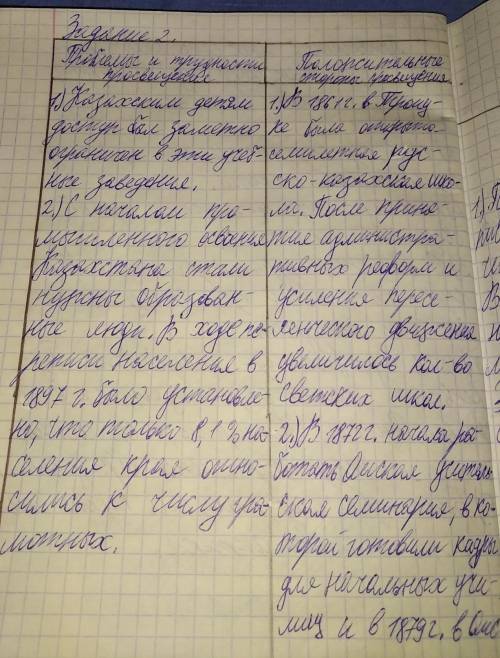 Задание 2.
Проблемы и трудности
просвещения
1) Казахским детям
доступ был заметно
ограничен в эти учеб-
ные заведения.
2) С началом про-
мышленного освоения
Казахстана стали
нужны образован-
ные люди. В ходе пе-
реписи населения в
1897 г. было установле-
но, что только 8,1 % на-
селения края отно-
сились к числу гра-
мотных.
Положительные
стороны просвещения
1.) В 1861 г. в Троиц-
ке была открыта
семилетняя рус-
ско-казахская шко-
ла. После приня-
тия администра-
тивных реформ и
усиления пересе-
ленческого движения
увеличилось кол-во
светских школ.
2.) В 1872 г. начала ра-
ботать Омская учитель-
ская семинария, в ко-
торой готовили кадры
для начальных учи-
лищ и в 1879 г. в Омс